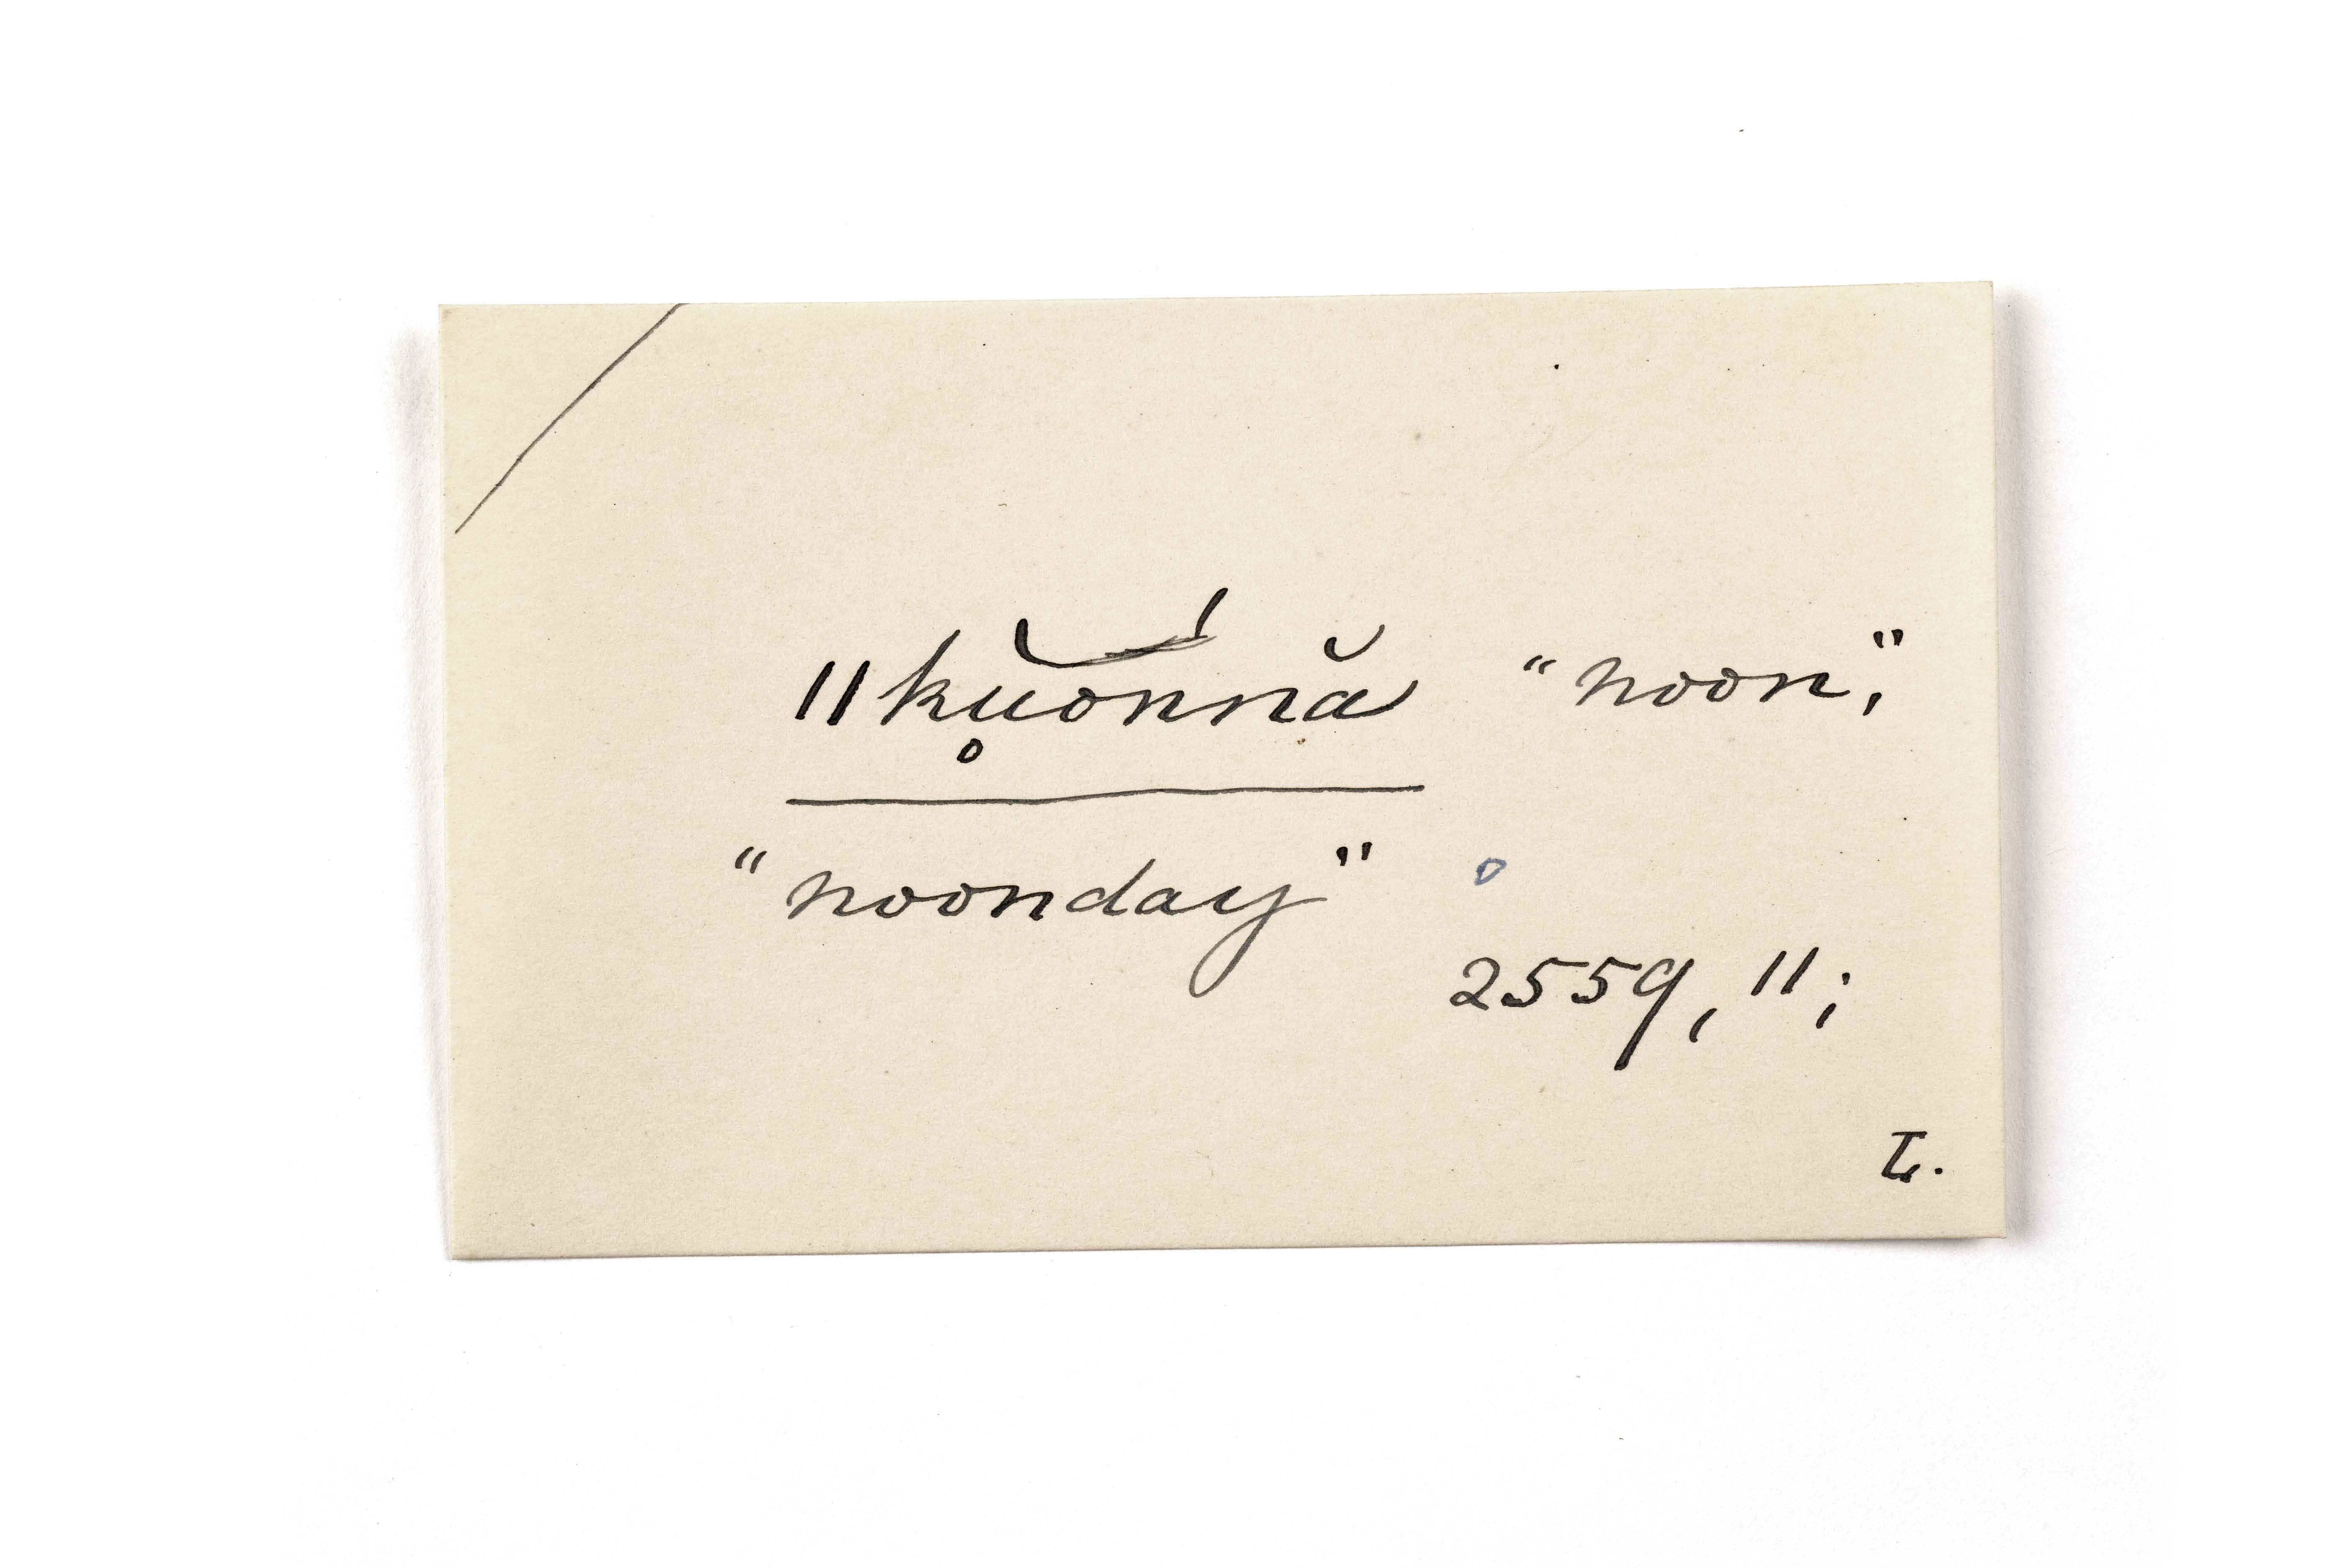 ǁku̥ŏ́nnă "noon,"
"noonday"
2559, 11;
L.